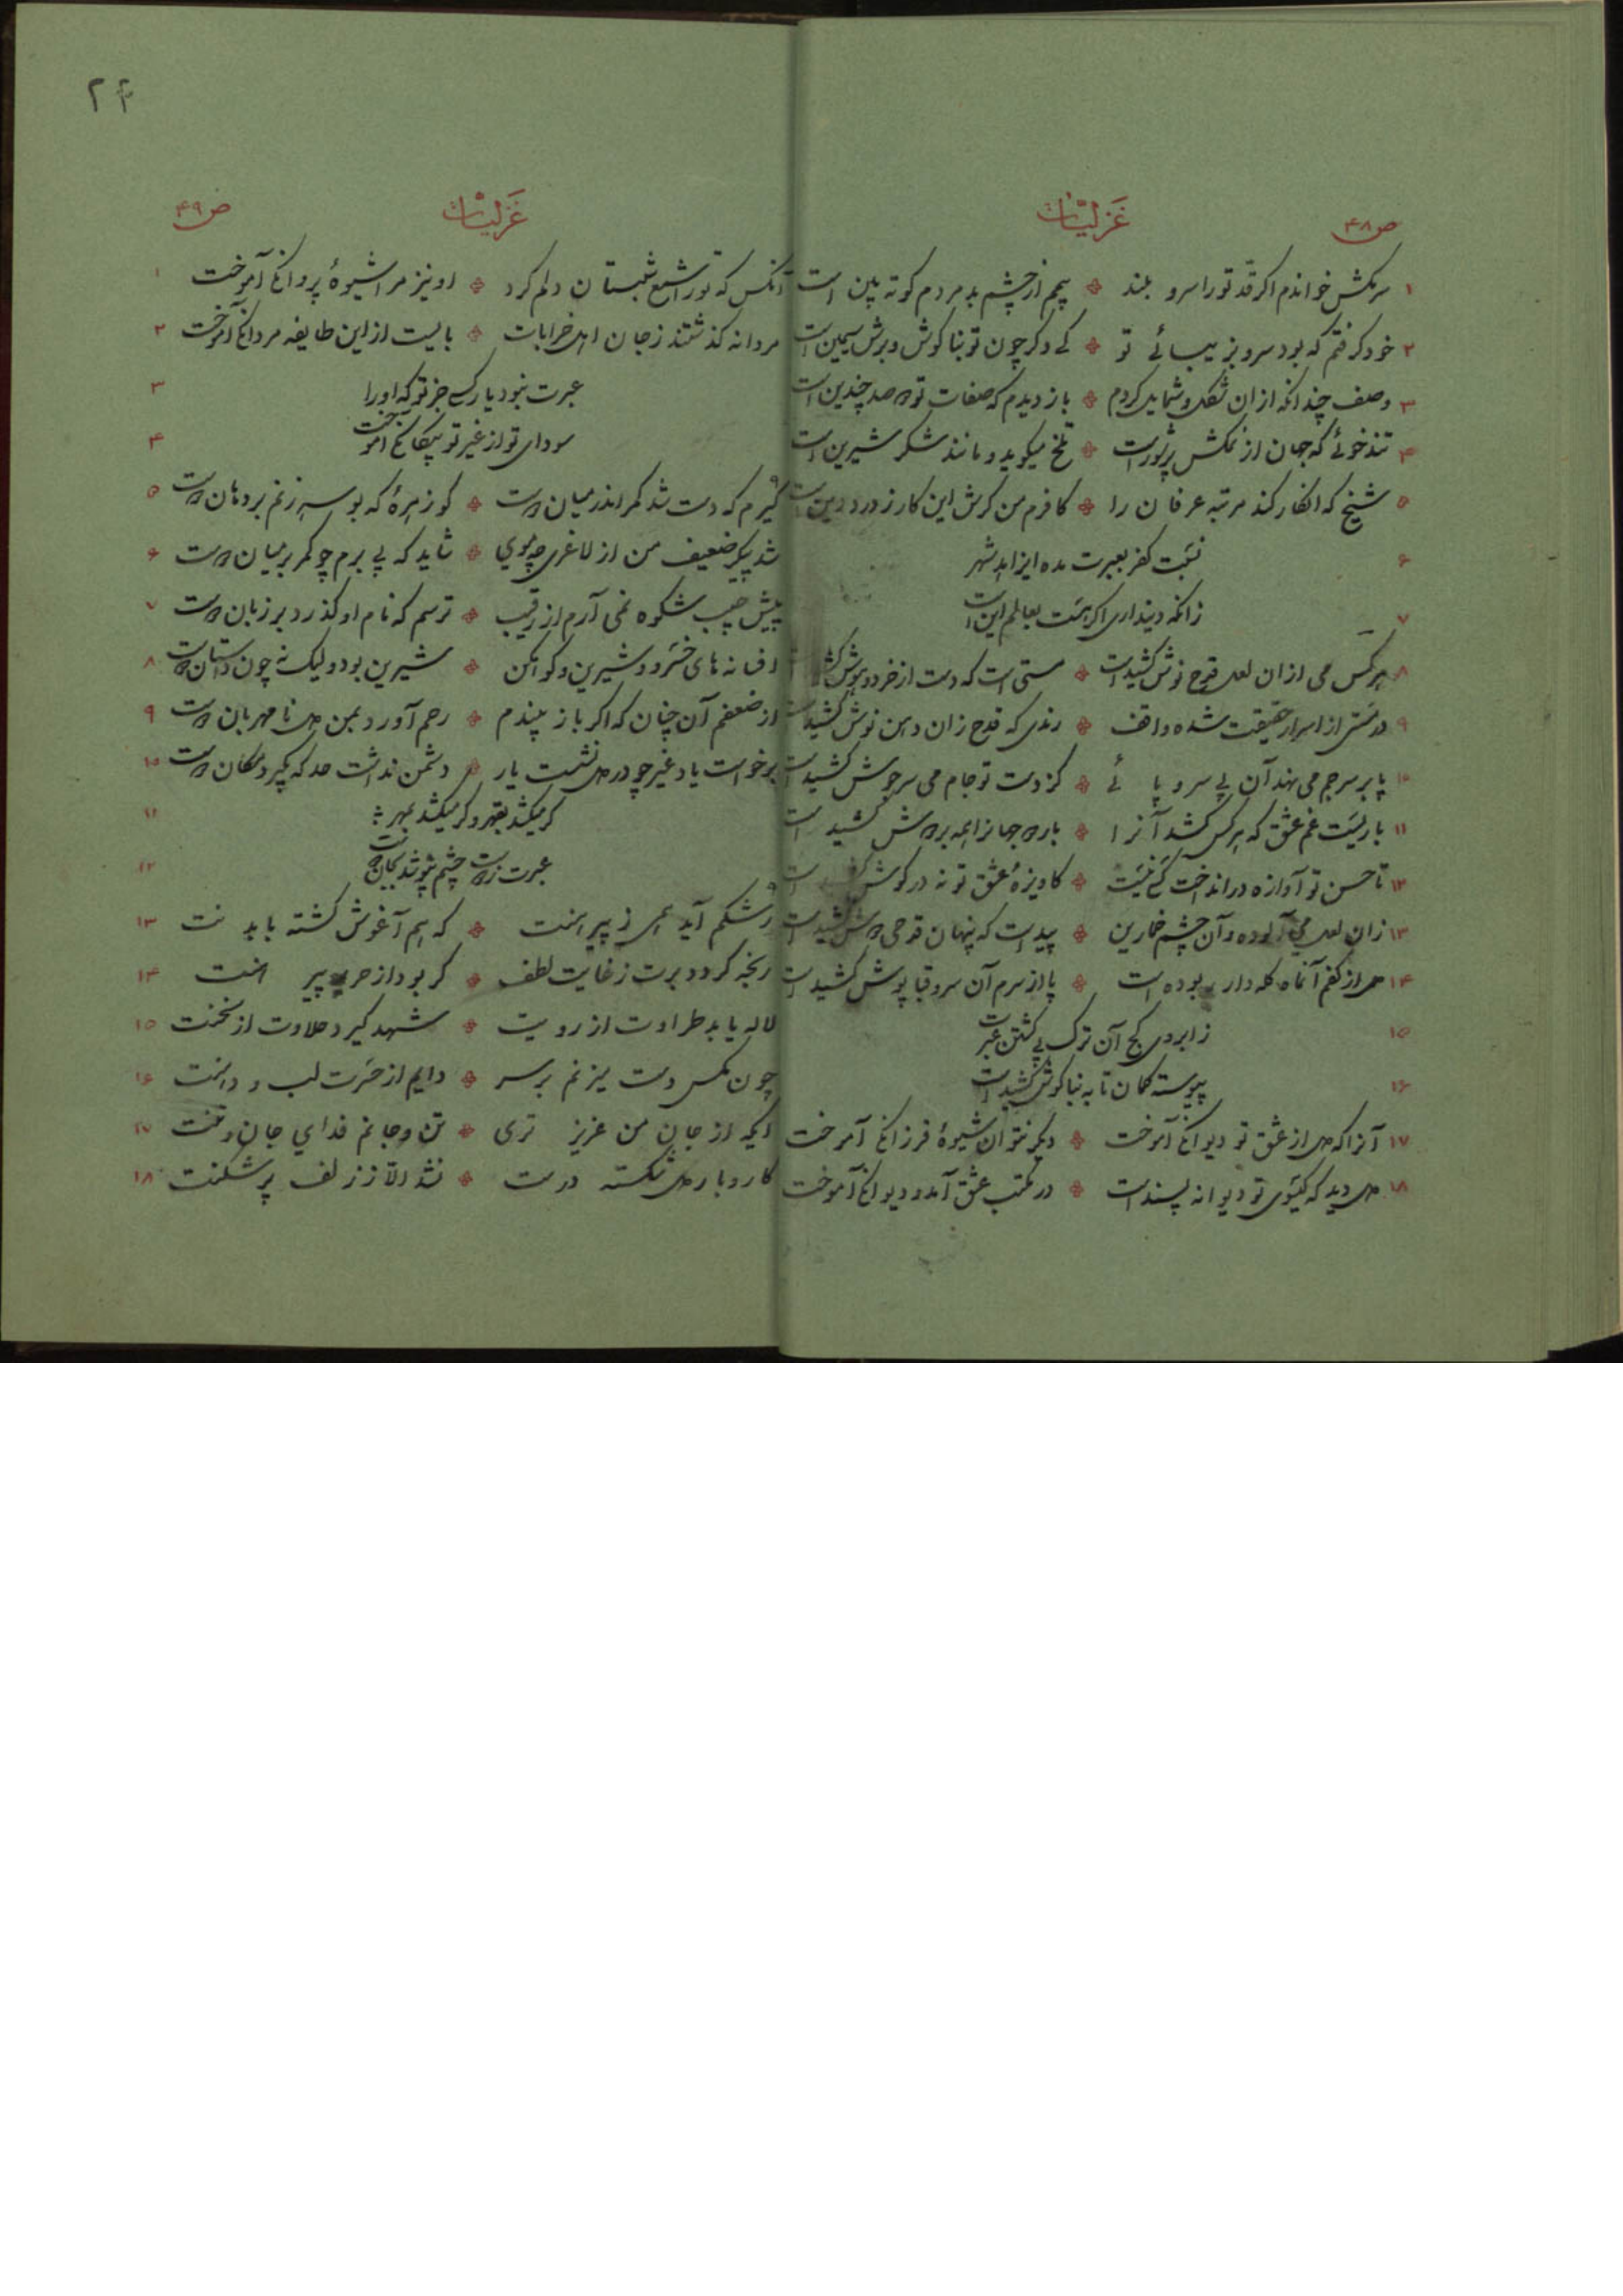 ۲۴
ص۴۸
غزلیّات
۱ سرکش خواندم اکر قدّ تو را سرو بلند ❖ بیم از چشم بد مردم کوته بین است
۲ خود کرفتم که بود سرو بزیبائی تو ❖ کی دکر چون تو بنا کوش و برش سیمین است
۳ وصف چندانکه از ان شکل و شمایل کردم ❖ باز دیدم که صفات تو دو صد چندین است
۴ تند خوئی که جهان از نمکش پر شور است ❖ تلخ میکوید و مانند شکر شیرین است
۵ شیخ که انکار کند مرتبه عرفان را ❖ کافرم من کرش این کار ز درد دین است
۶ نسبت کفر بعبرت مده ایزاهد شهر
۷ زانکه دینداری اکر هست بعالم این است
۸ هر کس می از ان لعل قدح نوش کشیداست ❖ مستی است که دست از خرد و هوش
۹ در مستی از اسرار حقیقت شده واقف ❖ رندی که قدح زان دهن نوش کشید
۱۰ پا بر سر جم می نهد آن بی سر و پا ئی ❖ کز دست تو جام می سرجوش کشید است
۱۱ باریست غم عشق که هر کس کشد آنرا ❖ بار دو جهانرا همه بر دوش کشید است
۱۲ تا حسن تو آوازه در انداخت کسی نیست ❖ کاویزهٔ عشق تو نه در کوش است
۱۳ زان لعل می آلوده و آن چشم خمارین ❖ پیداست که پنهان قدحی دوش کشید است
۱۴ دل از کفم آنماه کله دار ربوده است ❖ پا از سرم آن سرو قبا پوش کشید است
۱۵ ز ابروی کج آن ترک پی کشتن عبرت
۱۶ پیوسته کمان تا به بناکوش کشید است
۱۷ آنرا که دل از عشق تو دیوانکی آموخت ❖ دیکر نتوان شیوهٔ فرزانکی آموخت
۱۸ دل دید که کیسوی تو دیوانه پسند است ❖ در مکتب عشق آمد و دیوانکی آموخت
ص۴۹
غزلیّات
آنکس که تو را شمع شبستان دلم کرد ❖ او نیز مرا شیوهٔ پروانکی آموخت ۱
مردانه کذشتند ز جان اهل خرابات ❖ بایست از این طایفه مردانکی آموخت ۲
عبرت نبود یار کسی جز تو که او را ۳
سودای تو از غیر تو بیکانکی آموخت ۴
کیرم که دست شد کمر اندر میان دوست ❖ کو زهرهٔ که بوسه زنم بر دهان دوست ۵
شد پیکر ضعیف من از لاغری چو موی ❖ شاید که پی برم چو کمر بر میان دوست ۶
پیش حبیب شکوه نمی آرم از رقیب ❖ ترسم که نام او کذرد بر زبان دوست ۷
افسانه های خسرو و شیرین و کوهکن ❖ شیرین بود ولیک نه چون داستان دوست ۸
از ضعفم آن چنان که اکر باز بیندم ❖ رحم آورد بمن دل نا مهربان دوست ۹
برخواست یاد غیر چو در دل نشست یار ❖ دشمن نداشت حد که بکیرد مکان دوست ۱۰
کر میکشد بقهر و کر میکشد بمهر ۱۱
عبرت ز دست چشم نپوشد بجان دوست ۱۲
رشکم آید همی ز پیرهنت ❖ که هم آغوش کشته با بدنت ۱۳
رنجه کردد برت ز غایت لطف ❖ کر بود از حریر پیرهنت ۱۴
لاله یابد طراوت از رویت ❖ شهد کیرد حلاوت از سخنت ۱۵
چون مکس دست میزنم بر سر ❖ دایم از حسرت لب و دهنت ۱۶
ایکه از جان من عزیز تری ❖ تن و جانم فدای جان و تنت ۱۷
کار و بار دل شکسته درست ❖ نشد الّا ز زلف پر شکنت ۱۸